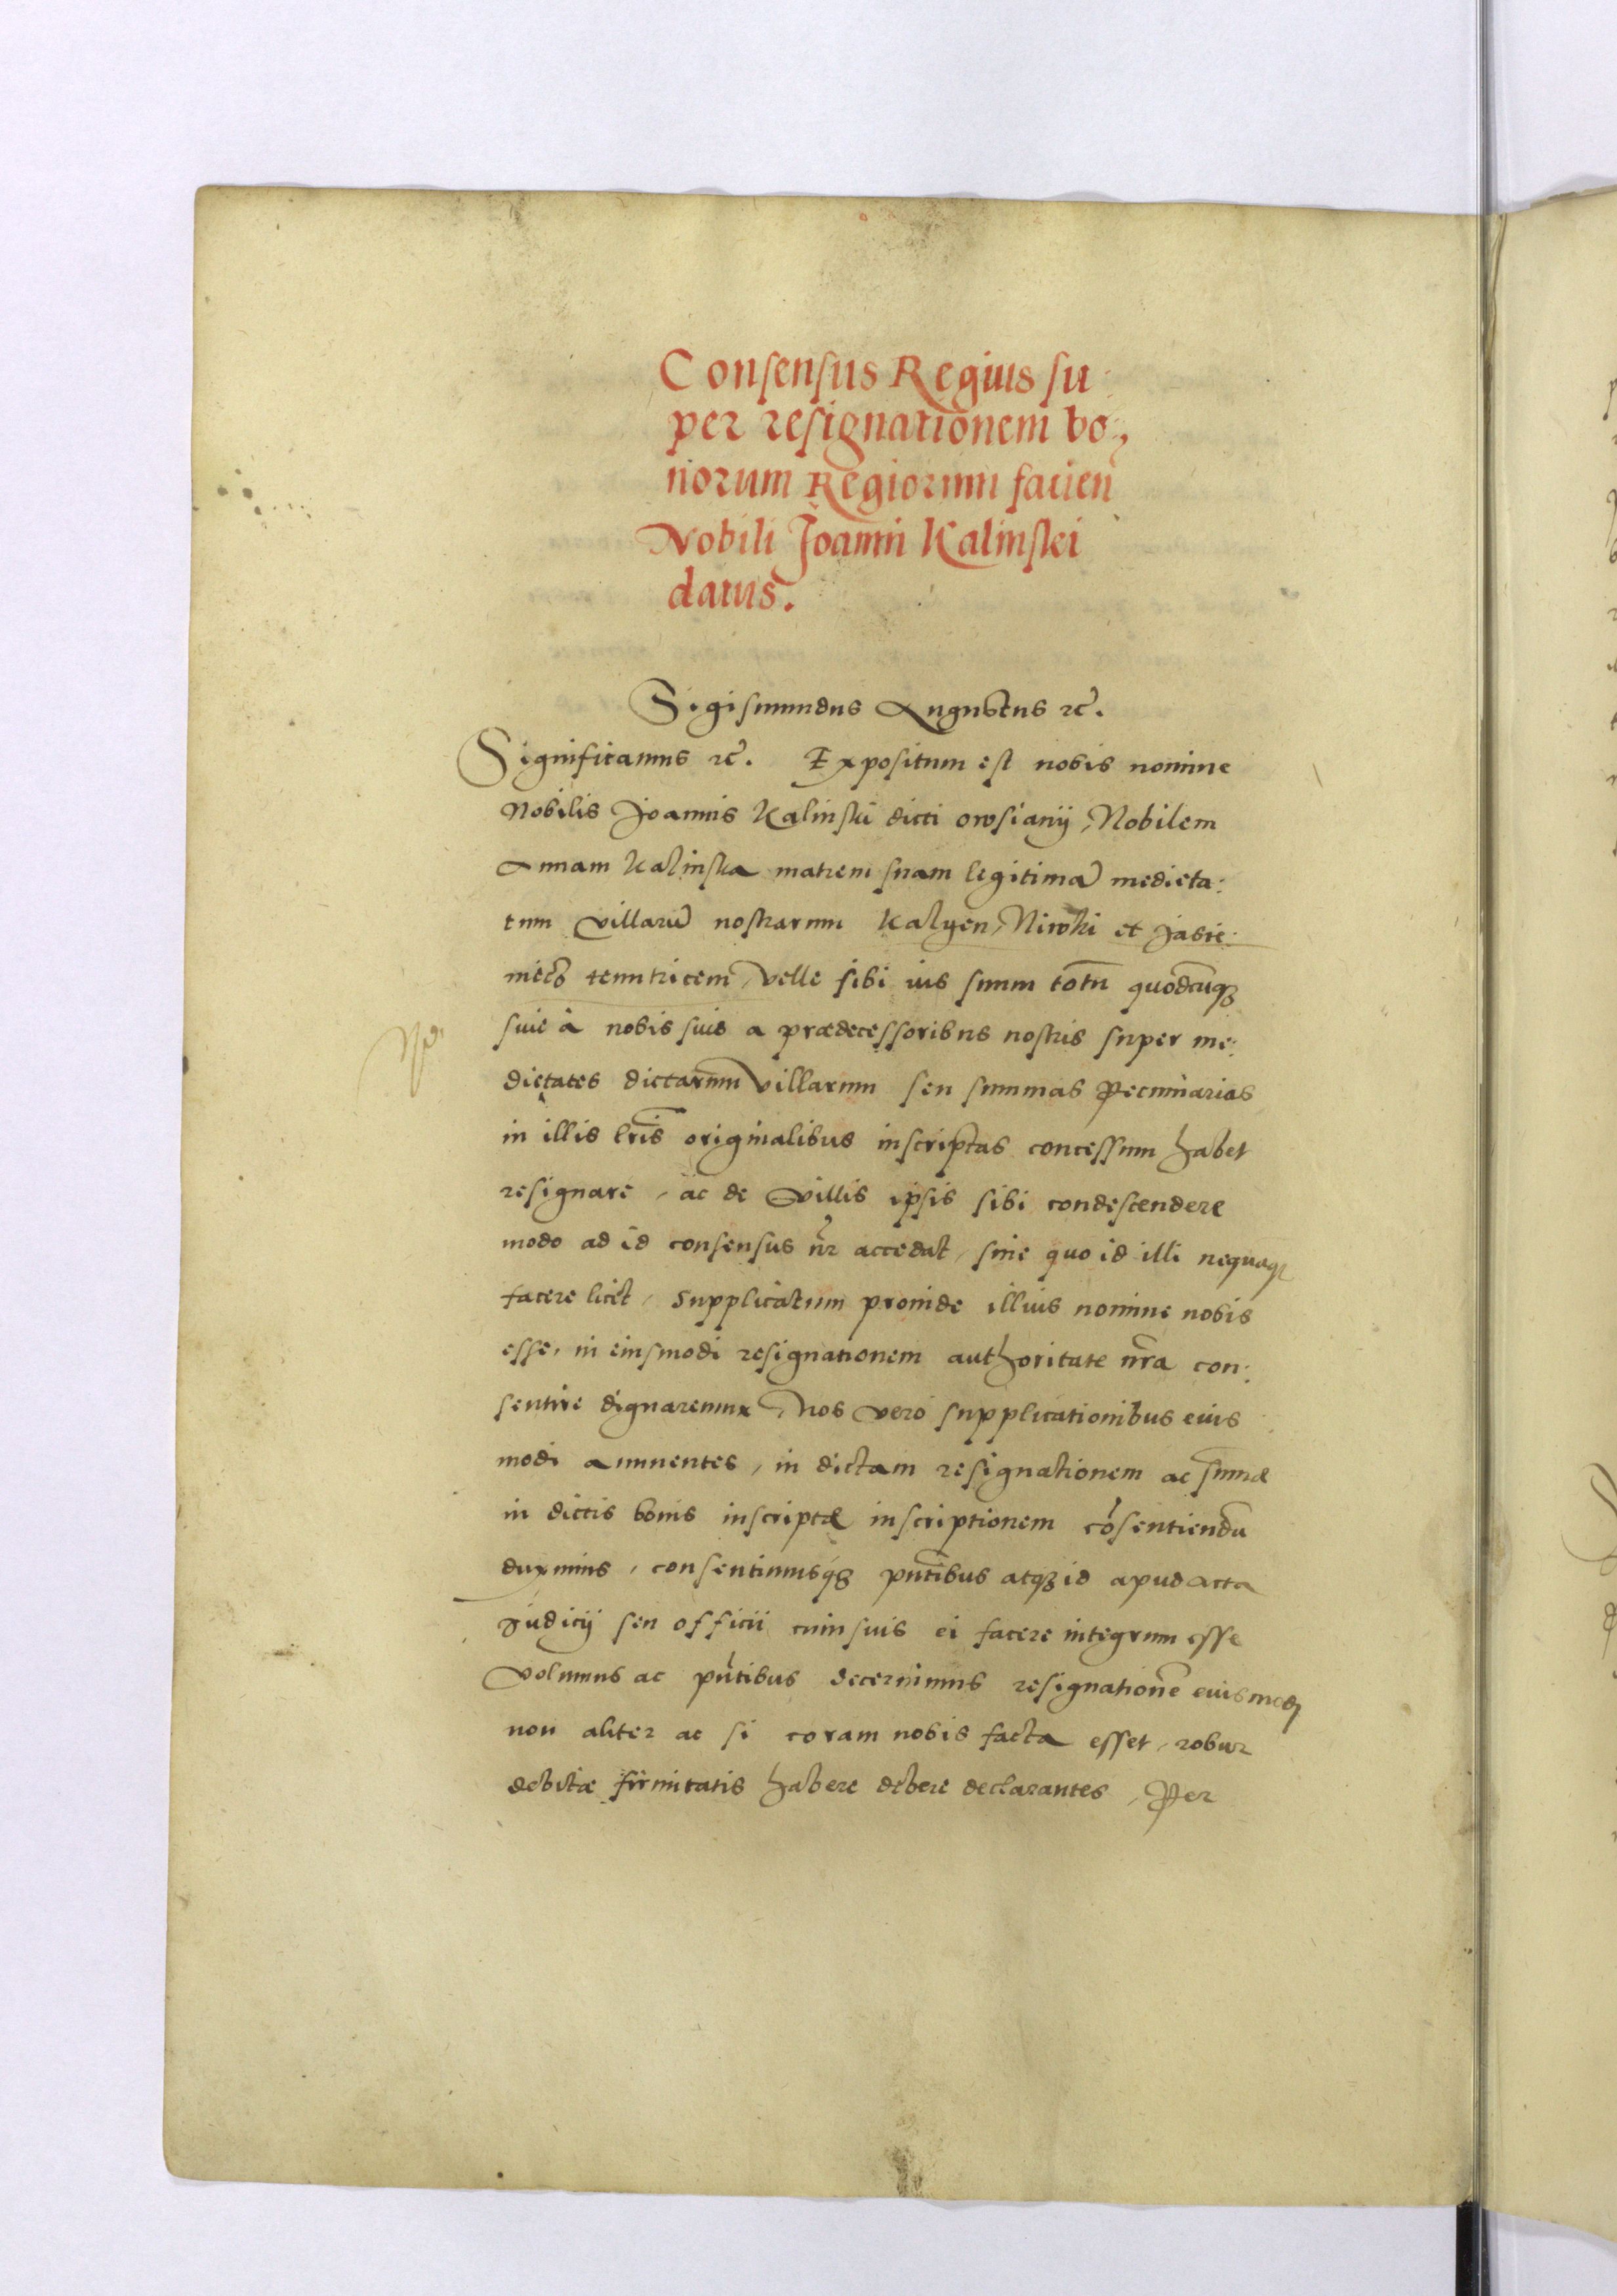 Consensus Regius su:
per resignationem bo:,
norum Regiorum facien̄
Nobili Joanni Kalinskei
datus.
Sigismundus Augustus rc̃.
Significamus rc̃. Expositum est nobis nomine
Nobilis Joannis Kalinski dicti owsianÿ, Nobilem
Annam Kalinska matrem suam legitimā medieta:
tum villarū nostrarum Kalyen, Niwki et Jasie:
niecz tenutricem, velle sibi ius suum totū quodcūq3
sive à nobis sive a prædecessoribus nostris super me:
dietates dictarum villarum seu summas pecuniarias
in illis lr̄is originalibus inscriptas concessum habet
resignare, ac de villis ipsis sibi condescendere
modo ad id consensus nr̄ accedat, sine quo id illi nequaq3
facere licet, Supplicatum proinde illius nomine nobis
esse, in eiusmodi resignationem authoritate nr̄a con:
sentire dignaremur, Nos vero supplicationibus eius
modi annuentes, in dictam resignationem ac sum̄æ
in dictis bonis inscriptæ inscriptionem cōsentiendū
duximus, consentimusq3 pn̄tibus atq3 id apud acta
Judicÿ seu officii cuiusvis ei facere integrum esse
volumus ac pn̄tibus decernimus resignationē eiusmodj
non aliter ac si coram nobis facta esset, robur
debitæ firmitatis habere debere declarantes, Per